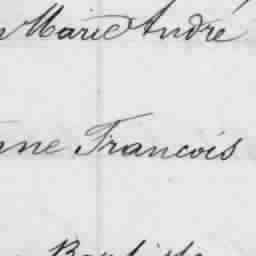 Marie André
ne Francois
Baptiste